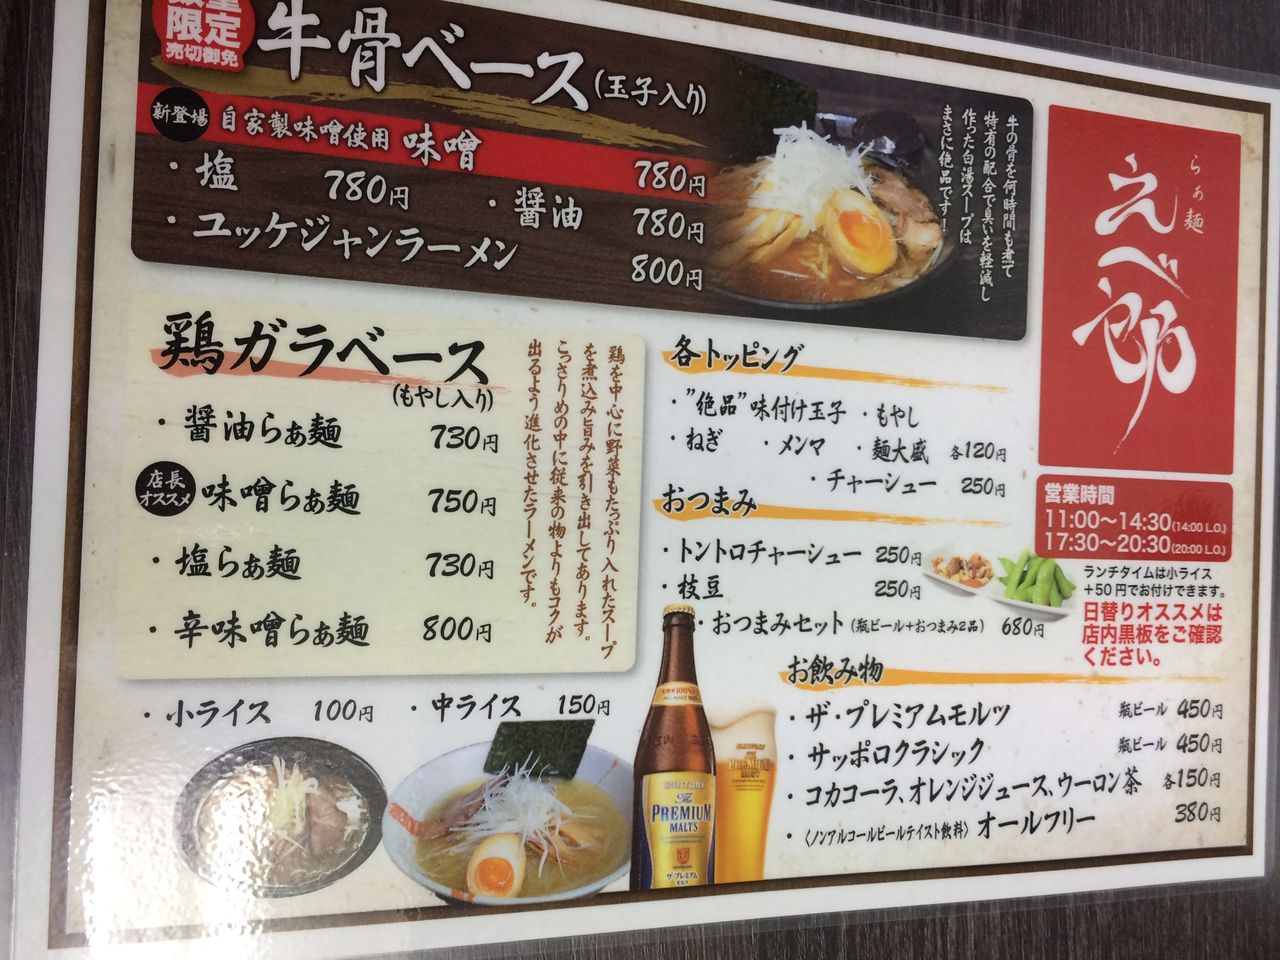 限定
売切御免
牛骨ベース(玉子入り)
新登場 自家製味噌使用 味噌 780円
・塩 780円 ・醤油 780円
・ユッケジャンラーメン 800円
牛の骨を何時間も煮て
特有の配合で臭いを軽減し
作った白湯スープは
まさに絶品です!
らぁ麺
えべ郎
鶏ガラベース
(もやし入り)
・醤油らぁ麺 730円
店長オススメ 味噌らぁ麺 750円
・塩らぁ麺 730円
・辛味噌らぁ麺 800円
鶏を中心に野菜もたっぷり入れたスープ
を煮込み旨みを引き出してあります。
こっさりめの中に従来の物よりもコクが
出るよう進化させたラーメンです。
・小ライス 100円 ・中ライス 150円
各トッピング
・"絶品"味付け玉子 ・もやし
・ねぎ ・メンマ ・麺大盛 各120円
・チャーシュー 250円
おつまみ
・トントロチャーシュー 250円
・枝豆 250円
・おつまみセット(瓶ビール+おつまみ2品) 680円
営業時間
11:00〜14:30(14:00 L.O.)
17:30〜20:30(20:00 L.O.)
ランチタイムは小ライス
+50円でお付けできます。
日替りオススメは
店内黒板をご確認
ください。
お飲み物
・ザ・プレミアムモルツ 瓶ビール 450円
・サッポロクラシック 瓶ビール 450円
・コカコーラ、オレンジジュース、ウーロン茶 各150円
・〈ノンアルコールビールテイスト飲料〉オールフリー 380円
SUNTORY
The
PREMIUM
MALT'S
ザ・プレミアム
モルツ